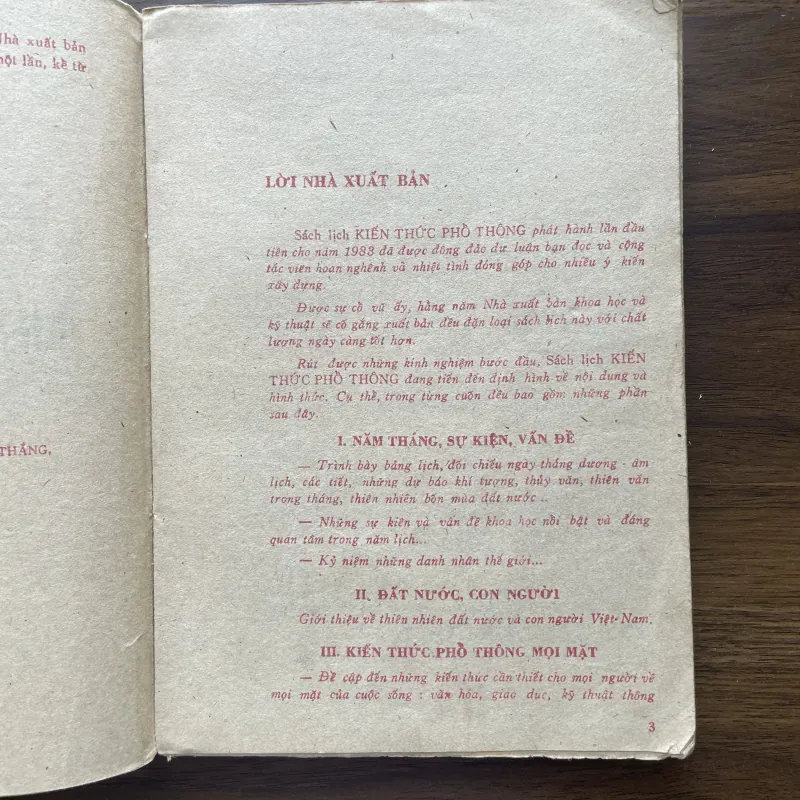 Nhà xuất bản
một lần, kể từ
THÁNG,
LỜI NHÀ XUẤT BẢN
Sách lịch KIẾN THỨC PHỔ THÔNG phát hành lần đầu
tiên cho năm 1983 đã được đông đảo dư luận bạn đọc và cộng
tác viên hoan nghênh và nhiệt tình đóng góp cho nhiều ý kiến
xây dựng.
Được sự cổ vũ ấy, hằng năm Nhà xuất bản khoa học và
kỹ thuật sẽ cố gắng xuất bản đều đặn loại sách lịch này với chất
lượng ngày càng tốt hơn.
Rút được những kinh nghiệm bước đầu, Sách lịch KIẾN
THỨC PHỔ THÔNG đang tiến đến định hình về nội dung và
hình thức. Cụ thể, trong từng cuốn đều bao gồm những phần
sau đây.
I. NĂM THÁNG, SỰ KIỆN, VẤN ĐỀ
— Trình bày bảng lịch, đối chiếu ngày tháng dương - âm
lịch, các tiết, những dự báo khí tượng, thủy văn, thiên văn
trong tháng, thiên nhiên bốn mùa đất nước...
— Những sự kiện và vấn đề khoa học nổi bật và đáng
quan tâm trong năm lịch...
— Kỷ niệm những danh nhân thế giới...
II. ĐẤT NƯỚC, CON NGƯỜI
Giới thiệu về thiên nhiên đất nước và con người Việt-Nam.
III. KIẾN THỨC PHỔ THÔNG MỌI MẶT
— Đề cập đến những kiến thức cần thiết cho mọi người về
mọi mặt của cuộc sống : văn hóa, giáo dục, kỹ thuật thông
3